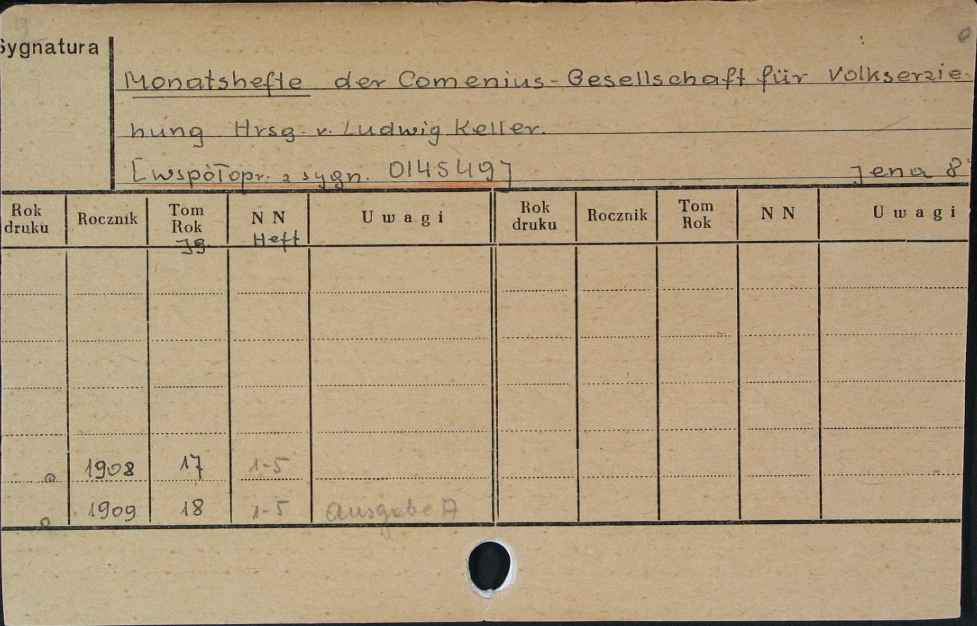 Sygnatura
Monatshefte der Comenius-Gesellschaft für Volkserzie-
hung Hrsg. v. Ludwig Keller.
[współopr. z sygn. 014549] Jena 8°
Rok druku Rocznik Tom Rok N N U w a g i Rok druku Rocznik Tom Rok N N U w a g i
Jg. Heft
1908 17 1-5
1909 18 1-5 Ausgabe A